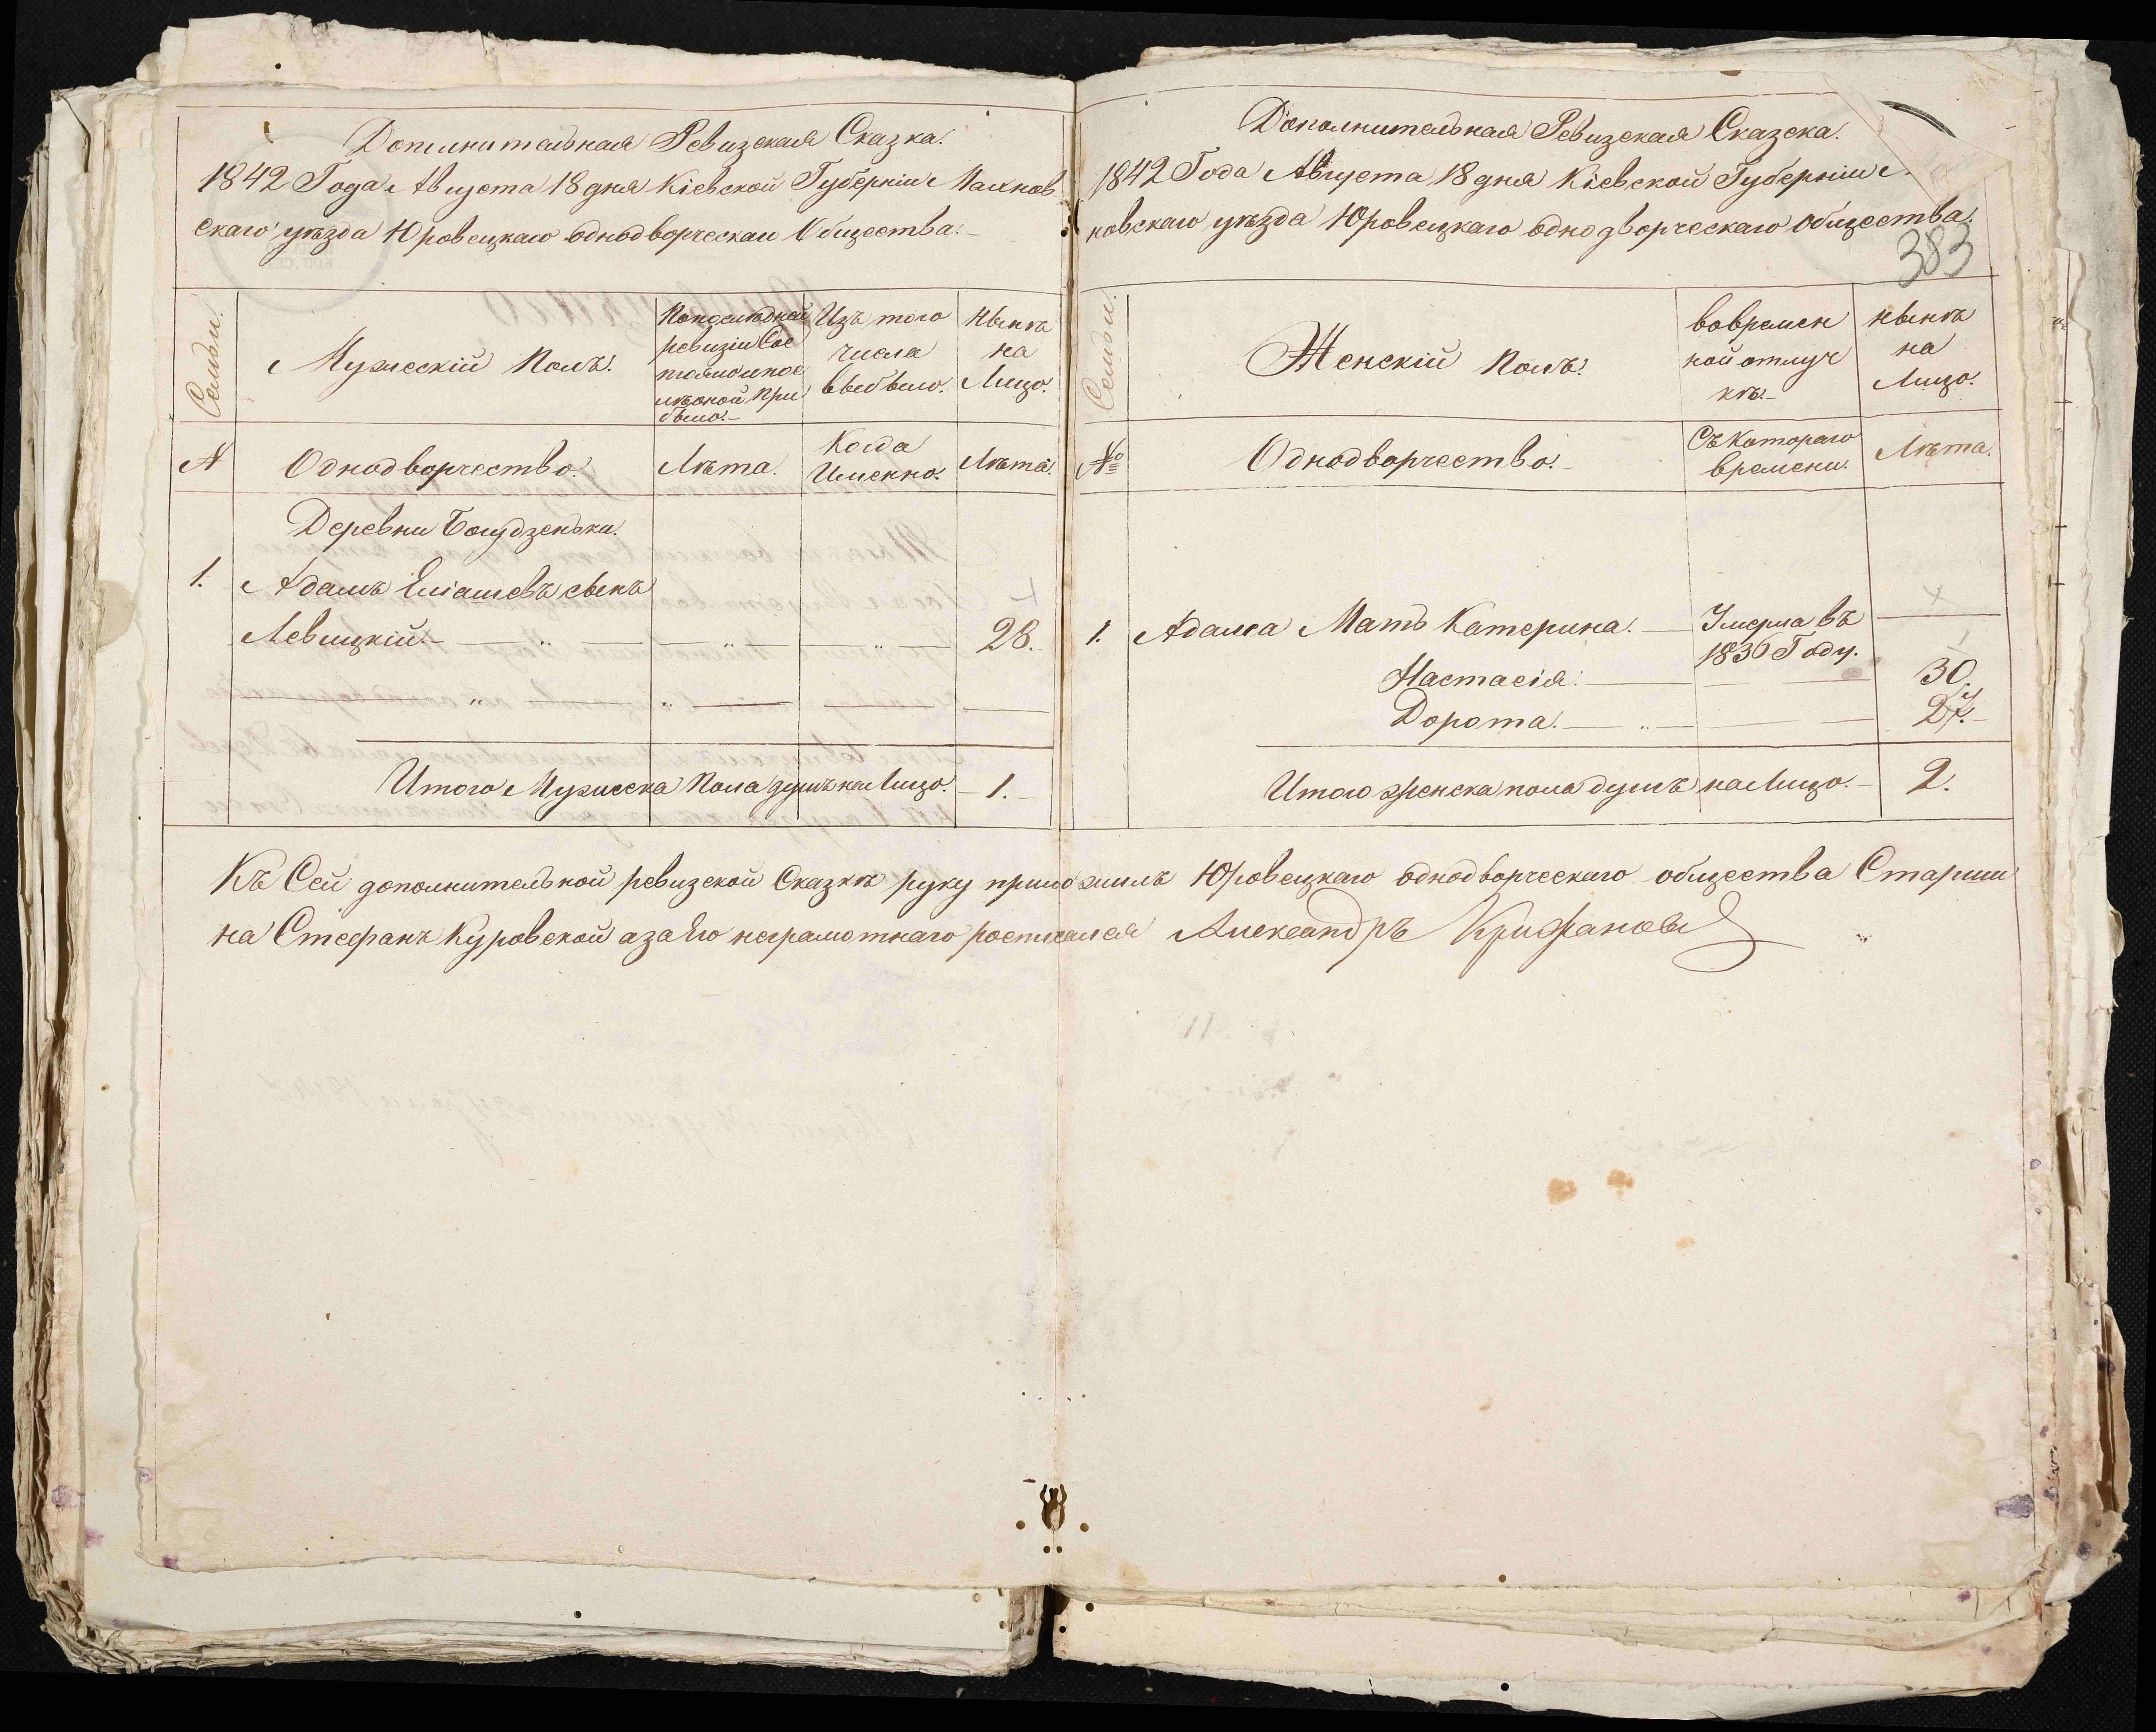 Дополнительная Ревизская Сказка.
1842 Года Августа 18 дня Кіевской Губерніи Махнов
скаго уѣзда Юровецкаго однодворческаи Общества.
Семьи.
Мужескій Полъ.
По последней
ревизіи Сос
тояло и пос
лѣ оной при
было.
Изъ того
числа
выбыло.
Нынѣ
на
Лицо.
№
Однодворчество.
Лѣта.
Когда
Именно.
Лѣта.
Деревни
1. Адамъ Еліашевъ сынъ
Левицкій. 28.
Итого Мужеска Пола душъ на Лицо. 1.
Дополнительная Ревизская Сказска.
1842 Года Августа 18 дня Кіевской Губерніи
новскаго уѣзда Юровецкаго однодворческаго общества.
383
Семьи.
Женскій Полъ.
во времен
ной отлуч
кѣ.
Нынѣ
на
Лицо.
№
Однодворчество.
Съ котораго
времени.
Лѣта.
1. Адама Мать Катерина. Умерла въ
1836 Году.
Настасія. 30.
Дорота.
Итого женска пола душъ на Лицо. 2.
Къ Сей дополнительной ревизской Сказкѣ руку приложилъ Юровецкаго однодворческаго общества Старши
на Стефанъ Куровской а за Его неграмотнаго росписался Александръ